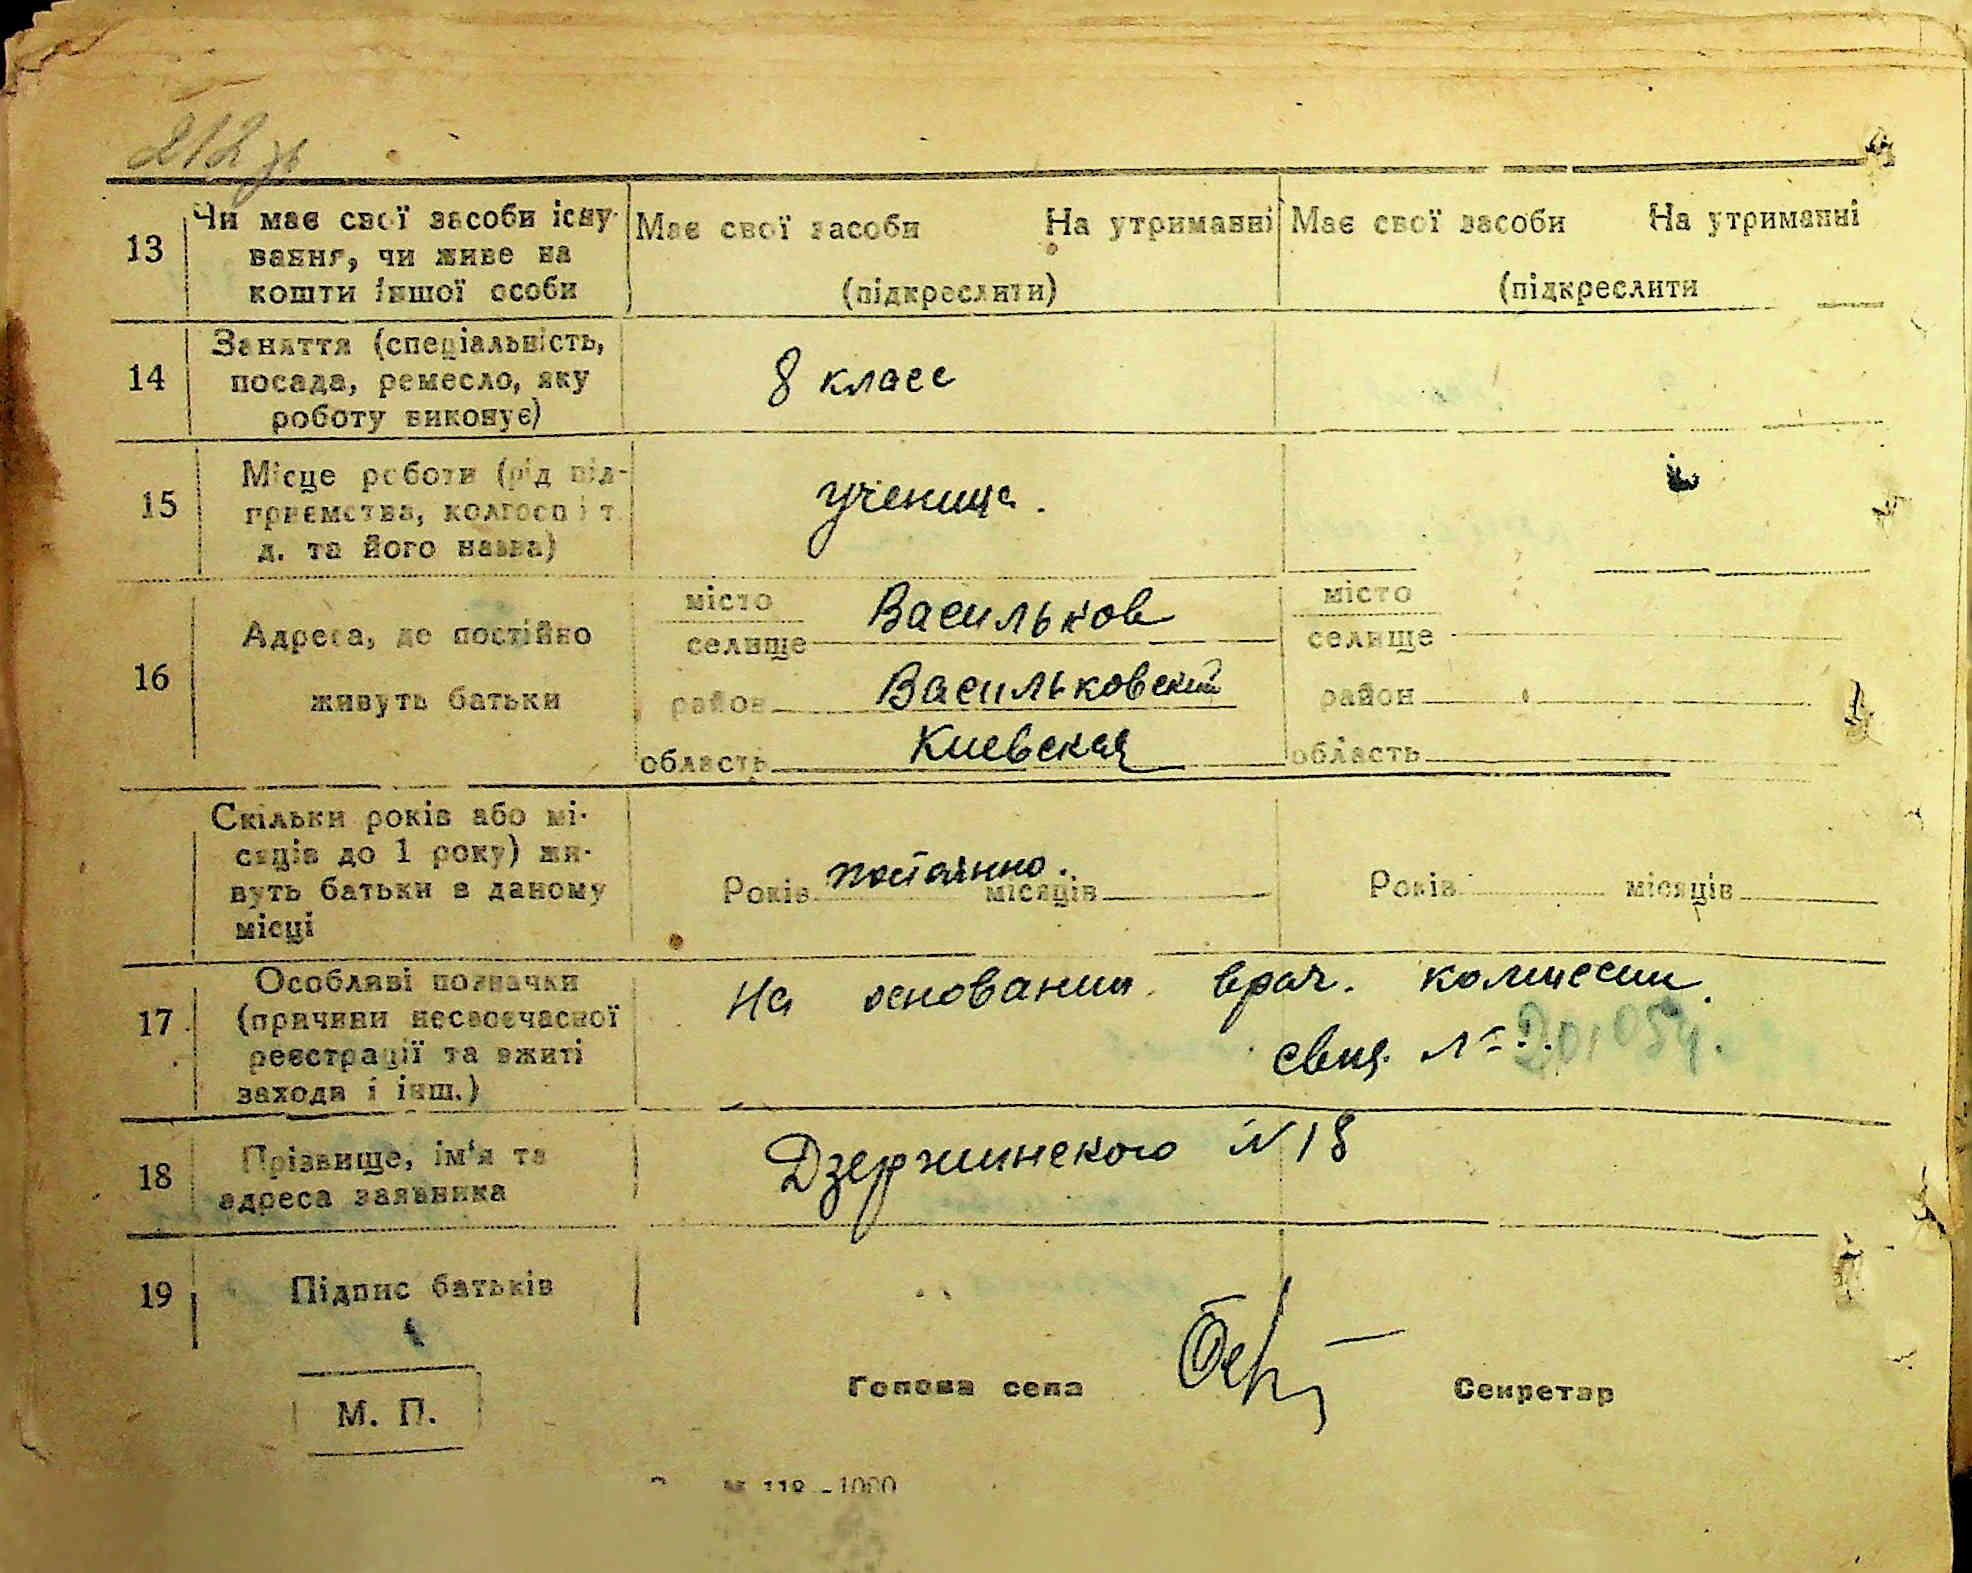 212 зв
13 Чи має свої засоби існу- Має свої засоби На утриманні Має свої засоби На утриманні
вання, чи живе на
кошти іншої особи (підкреслити) (підкреслити
Заняття (спеціальність,
14 посада, ремесло, яку 8 класс
роботу виконує)
Місце роботи (рід під-
15 приємства, колгосп і т. ученица.
д. та його назва)
місто Васильков місто
Адреса, де постійно селище селище
16 живуть батьки район Васильковский район
область Киевская область
Скільки років або мі-
сяців до 1 року) жи-
вуть батьки в даному Років постоянно. місяців Років місяців
місці
Особливі позначки На основании врач. комиссии.
17 (причини несвоєчасної
реєстрації та вжиті свид. №
заходи і інш.)
18 Прізвище, ім'я та Дзержинского N 18
адреса заявника
19 Підпис батьків
Голова села Секретар
М. П.